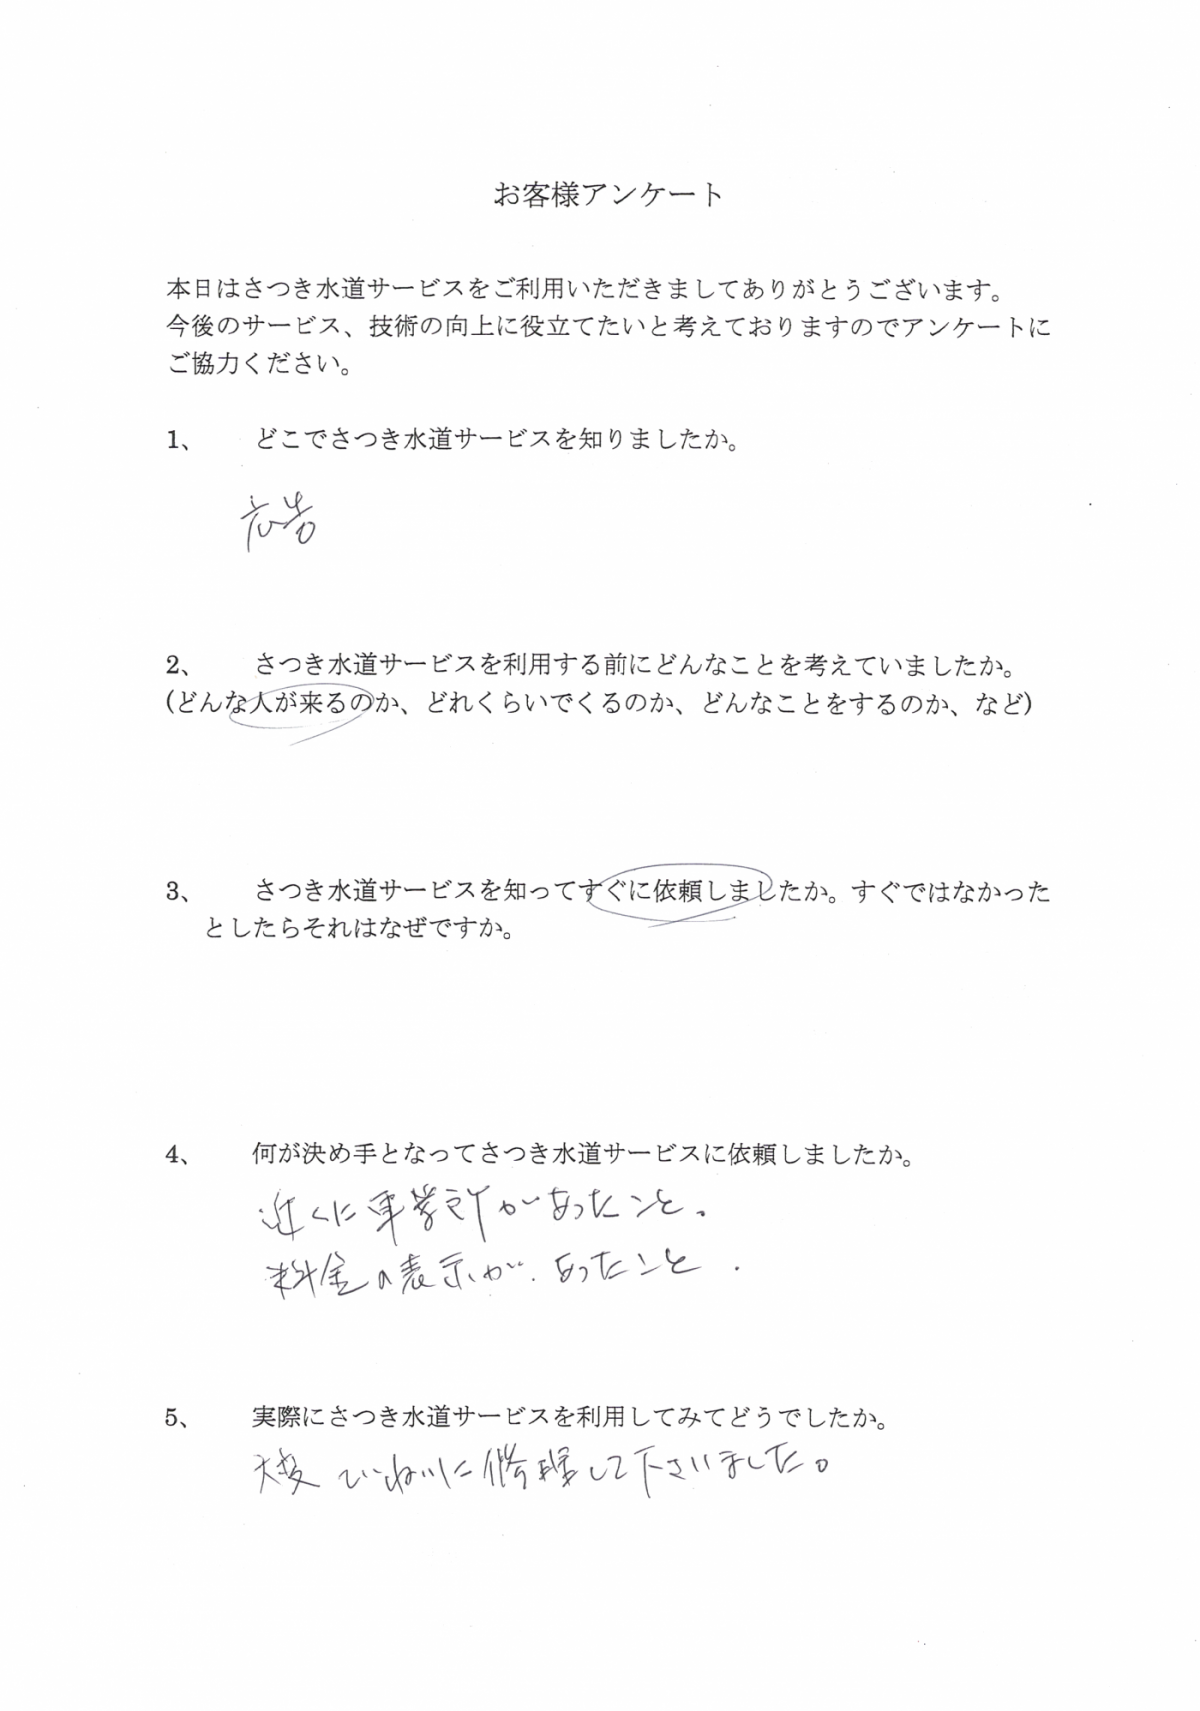 お客様アンケート
本日はさつき水道サービスをご利用いただきましてありがとうございます。
今後のサービス、技術の向上に役立てたいと考えておりますのでアンケートに
ご協力ください。
1、 どこでさつき水道サービスを知りましたか。
広告
2、 さつき水道サービスを利用する前にどんなことを考えていましたか。
(どんな人が来るのか、どれくらいでくるのか、どんなことをするのか、など)
3、 さつき水道サービスを知ってすぐに依頼しましたか。すぐではなかった
としたらそれはなぜですか。
4、 何が決め手となってさつき水道サービスに依頼しましたか。
近くに事業所があったこと。
料金の表示が、あったこと.
5、 実際にさつき水道サービスを利用してみてどうでしたか。
大変ていねいに修理して下さいました。